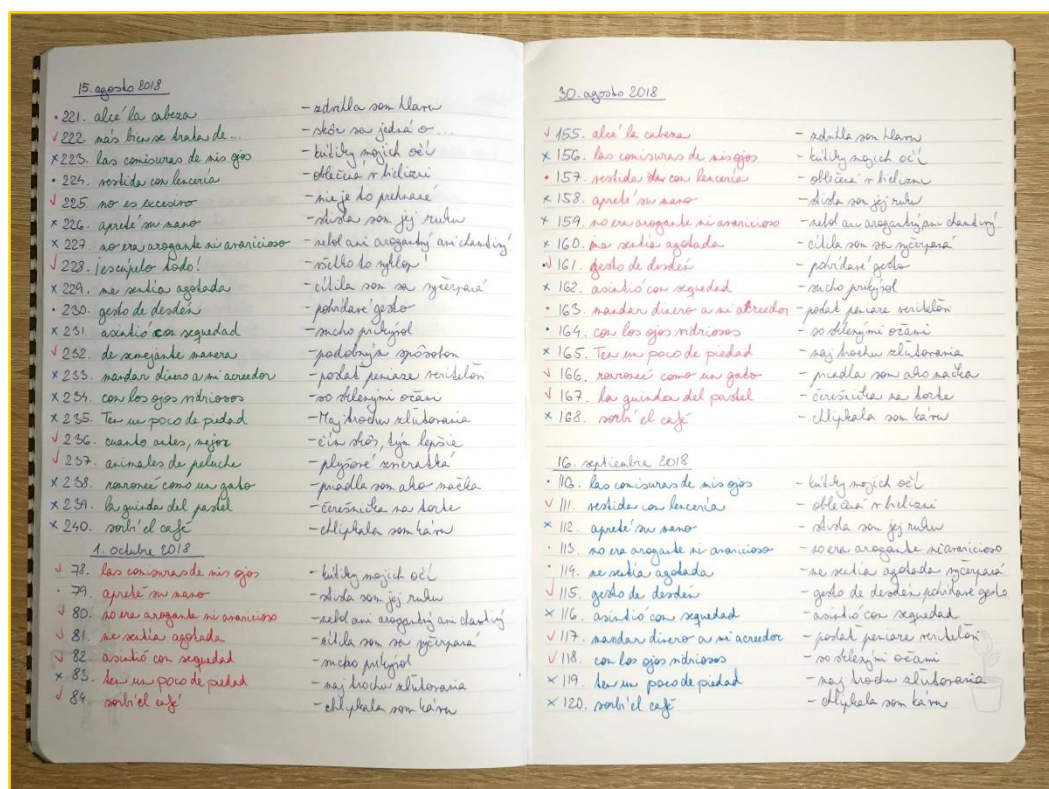 15. agosto 2018
• 221. alcé la cabeza - zdvihla som hlavu
✓ 222. más bien se trata de... - skôr sa jedná o...
× 223. las comisuras de mis ojos - kútiky mojich očí
• 224. vestida con lencería - oblečená v bielizni
✓ 225. no es excesivo - nie je to prehnané
× 226. apreté su mano - stisla som jej ruku
× 227. no era arogante ni avaricioso - nebol ani arogantný ani chamtivý
✓ 228. ¡escúpelo todo! - všetko to vyklop!
× 229. me sentía agotada - cítila som sa vyčerpaná
• 230. gesto de desdén - pohŕdavé gesto
× 231. asintió con sequedad - sucho prikývol
✓ 232. de semejante manera - podobným spôsobom
× 233. mandar dinero a mi acreedor - poslať peniaze veriteľovi
× 234. con los ojos vidriosos - so sklenými očami
× 235. Ten un poco de piedad - Maj trochu zľutovania
✓ 236. cuanto antes, mejor - čím skôr, tým lepšie
✓ 237. animales de peluche - plyšové zvieratká
× 238. ronroneé como un gato - priadla som ako mačka
× 239. la guinda del pastel - čerešnička na torte
× 240. sorbí el café - chlípkala som kávu
1. octubre 2018
✓ 78. las comisuras de mis ojos - kútiky mojich očí
• 79. apreté su mano - stisla som jej ruku
✓ 80. no era arogante ni avaricioso - nebol ani arogantný ani chamtivý
✓ 81. me sentía agotada - cítila som sa vyčerpaná
✓ 82. asintió con sequedad - sucho prikývol
× 83. ten un poco de piedad - maj trochu zľutovania
✓ 84. sorbí el café - chlípkala som kávu
30. agosto 2018
✓ 155. alcé la cabeza - zdvihla som hlavu
× 156. las comisuras de mis ojos - kútiky mojich očí
• 157. vestida con lencería - oblečená v bielizni
× 158. apreté su mano - stisla som jej ruku
× 159. no era arogante ni avaricioso - nebol ani arogantný ani chamtivý
× 160. me sentía agotada - cítila som sa vyčerpaná
✓ 161. gesto de desdén - pohŕdavé gesto
× 162. asintió con sequedad - sucho prikývol
• 163. mandar dinero a mi acreedor - poslať peniaze veriteľovi
• 164. con los ojos vidriosos - so sklenými očami
× 165. Ten un poco de piedad - maj trochu zľutovania
✓ 166. ronroneé como un gato - priadla som ako mačka
✓ 167. la guinda del pastel - čerešnička na torte
× 168. sorbí el café - chlípkala som kávu
16. septiembre 2018
• 110. las comisuras de mis ojos - kútiky mojich očí
✓ 111. vestida con lencería - oblečená v bielizni
× 112. apreté su mano - stisla som jej ruku
• 113. no era arogante ni avaricioso - no era arogante ni avaricioso
• 114. me sentía agotada - me sentía agotada vyčerpaná
✓ 115. gesto de desdén - gesto de desdén pohŕdavé gesto
× 116. asintió con sequedad - asintió con sequedad
✓ 117. mandar dinero a mi acreedor - poslať peniaze veriteľovi
✓ 118. con los ojos vidriosos - so sklenými očami
× 119. ten un poco de piedad - maj trochu zľutovania
× 120. sorbí el café - chlípkala som kávu